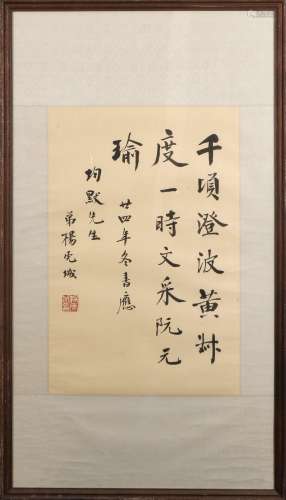 千頃澄波黃叔
度一時文采阮元
瑜
廿四年冬書應
均默先生
弟楊虎城